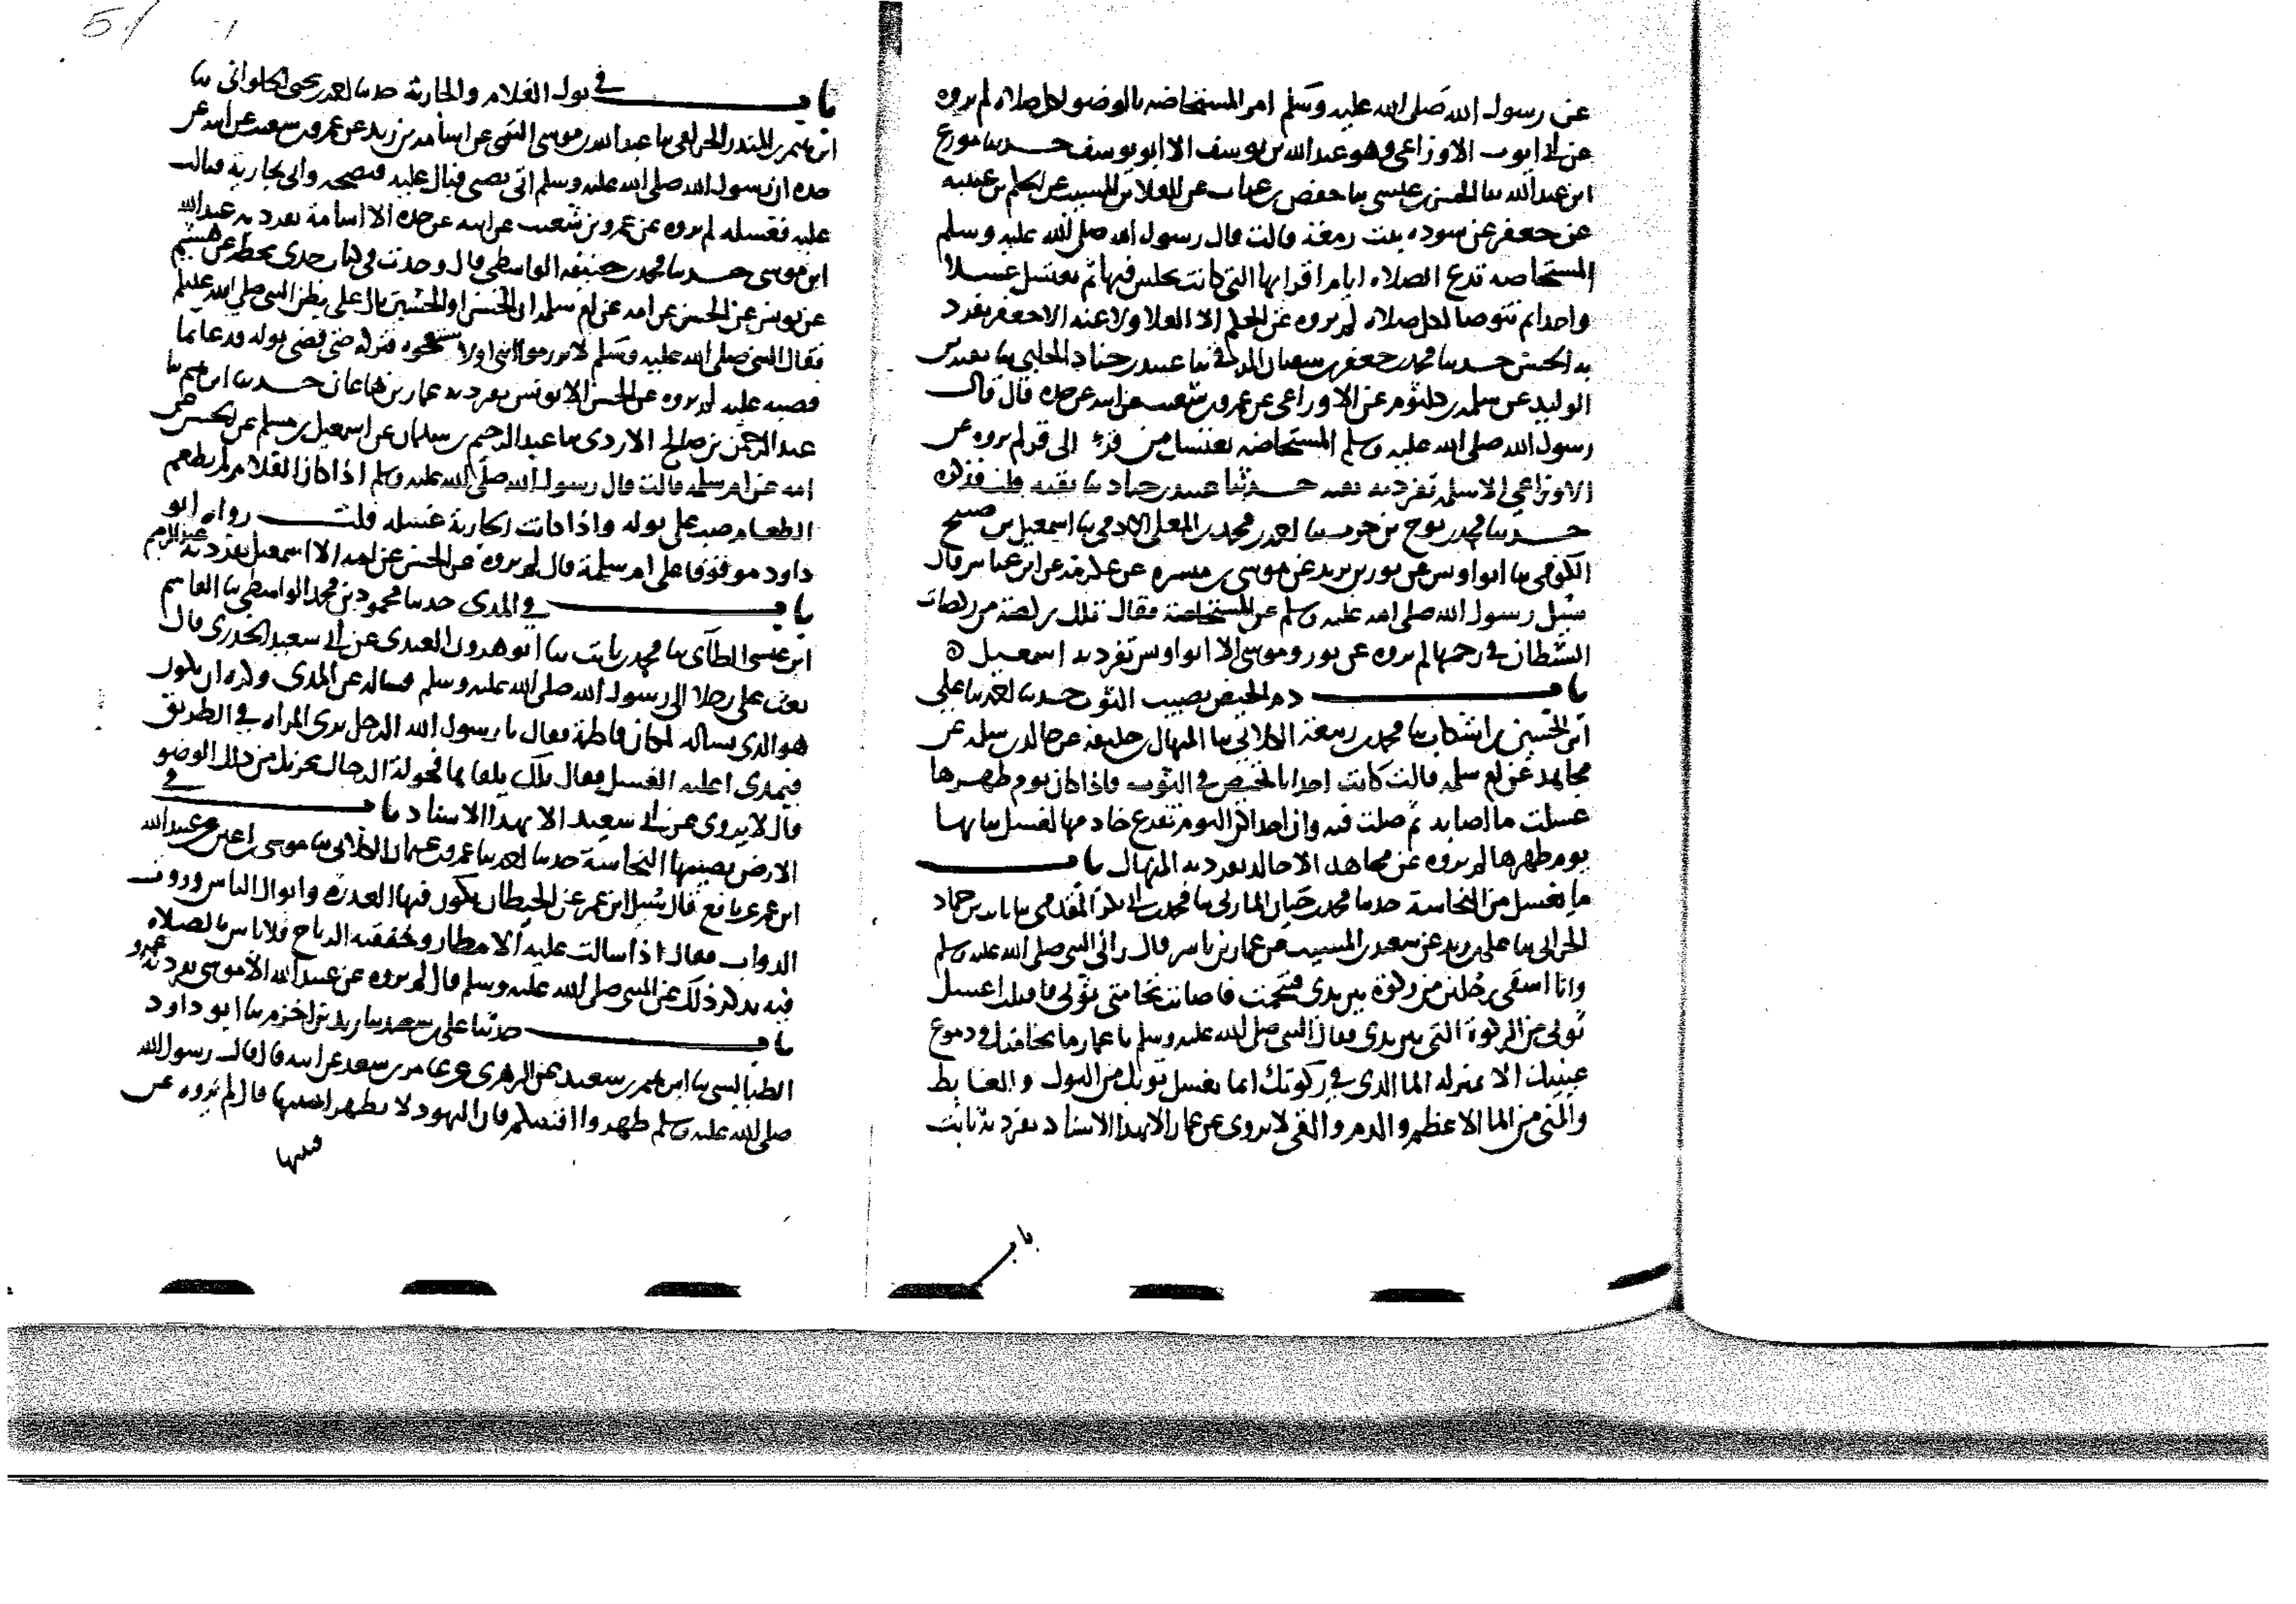 عن رسول الله صلى الله عليه وسلم امر المستحاضه بالوضو لكل صلاه لم يروه
عن ابى ايوب الاوزاعى وهو عبدالله بن يوسف الا ابو يوسف حدثنا مورع
ابن عبدالله ثنا الحسن بن عيسى ثنا حفص بن غياث عن العلا بن المسيب عن الحكم بن عتيبه
عن جعفر عن سوده بنت زمعة قالت قال رسول الله صلى الله عليه وسلم
المستحاضه تدع الصلاه ايام اقرائها التى كانت تجلس فيها ثم تغتسل غسلا
واحدا ثم تتوضا لكل صلاه لم يروه عن الحكم الا العلا ولا عنه الا حفص تفرد
به الحسن حدثنا محمد بن جعفر بن سفيان الرقى ثنا عبيد بن جناد الحلبى ثنا بقيه بن
الوليد عن سلمه بن كلثوم عن الاوزاعى عن عمرو بن شعيب عن ابيه عن جده قال قال
رسول الله صلى الله عليه وسلم المستحاضه تغتسل من قرء الى قر لم يروه عن
الاوزاعى الا سلمه تفرد به بقيه حدثنا عبيد بن جناد ثنا بقيه قلت فذكره
حدثنا محمد بن نوح بن حرب ثنا احمد بن محمد بن المعلى الادمى ثنا اسمعيل بن صبيح
الكوفى ثنا ابو اويس عن ثور بن يزيد عن موسى بن ميسره عن عكرمه عن ابن عباس قال
سئل رسول الله صلى الله عليه وسلم عن المستحاضة فقال تلك ركضة من ركضات
الشيطان فى رحمها لم يروه عن ثور وموسى الا ابو اويس تفرد به اسمعيل
باب دم الحيض يصيب الثوب حدثنا احمد ثنا على
ابن الحسين بن اشكاب ثنا محمد بن ربيعة الكلابى ثنا المنهال بن خليفه عن خالد بن سلمه عن
مجاهد عن ام سلمه قالت كانت احدانا تحيض فى الثوب فاذا كان يوم طهرها
غسلت ما اصابه ثم صلت فيه وان احداكن اليوم تفرغ خادمها لغسل ثيابها
يوم طهرها لم يروه عن مجاهد الا خالد تفرد به المنهال باب
ما يغسل من النجاسة حدثنا محمد بن حيان المازنى ثنا محمد بن ابى بكر المقدمى ثنا ثابت بن حماد
الحرانى ثنا على بن زيد عن سعيد بن المسيب عن عمار بن ياسر قال رانى النبى صلى الله عليه وسلم
وانا اسقى رجلين من ركوة بين يدى فتنخمت فاصابت نخامتى ثوبى فاقبلت اغسل
ثوبى من الركوة التى بين يدى فقال النبى صلى الله عليه وسلم يا عمار ما نخامتك ودموع
عينيك الا بمنزله الما الذى فى ركوتك انما يغسل ثوبك من البول والغايط
والمنى من الما الاعظم والدم والقى لا يروى عن عمار الا بهذا الاسناد تفرد به ثابت
باب
باب فى بول الغلام والجارية حدثنا احمد بن يحيى الحلوانى ثنا
ابرهيم بن المنذر الحزامى ثنا عبدالله بن موسى التيمى عن اسامه بن زيد عن عمرو بن شعيب عن ابيه عن
جده ان رسول الله صلى الله عليه وسلم اتى بصبى فبال عليه فنضحه واتى بجارية فبالت
عليه فغسله لم يروه عن عمرو بن شعيب عن ابيه عن جده الا اسامة تفرد به عبدالله
ابن موسى حدثنا محمد بن حنيفه الواسطى قال وجدت فى كتاب جدى بخطه عن هشيم
عن يونس عن الحسن عن امه عن ام سلمه ان الحسن او الحسين بال على بطن النبى صلى الله عليه وسلم
فقال النبى صلى الله عليه وسلم لا تزرموا ابنى او لا تستعجلوه فتركه حتى قضى بوله فدعا بما
فصبه عليه لم يروه عن الحسن الا يونس تفرد به عمار بن هانى حدثنا ابرهيم ثنا
عبد الرحمن بن صالح الازدى ثنا عبد الرحيم بن سليمان عن اسمعيل بن مسلم عن الحسن عن
امه عن ام سلمه قالت قال رسول الله صلى الله عليه وسلم اذا كان الغلام لم يطعم
الطعام صب على بوله واذا كانت الجارية غسله قلت رواه ابو
داود موقوفا على ام سلمة قال لم يروه عن الحسن عن امه الا اسمعيل تفرد به عبد الرحيم
باب فى المذى حدثنا محمود بن محمد الواسطى ثنا القاسم
ابن عيسى الطائى ثنا محمد بن ثابت ثنا ابو هرون العبدى عن ابى سعيد الخدرى قال
بعث على رجلا الى رسول الله صلى الله عليه وسلم فساله عن المذى وكره ان يكون
هو الذى يساله لمكان فاطمة فقال يا رسول الله الرجل يرى المراه فى الطريق
فيمذى اعليه الغسل فقال تلك يلقاها فحولة الرجال يجزيك من ذلك الوضو
قال لا يروى عن ابى سعيد الا بهذا الاسناد باب فى
الارض يصيبها النجاسة حدثنا احمد ثنا عمرو بن عثمان الكلابى ثنا موسى بن اعين عن عبدالله
ابن عمر عن نافع قال سئل ابن عمر عن الحيطان يكون فيها العذرة وابوال الناس وروث
الدواب فقال اذا سالت عليه الامطار وجففته الرياح فلا باس بالصلاه
فيه يذكر ذلك عن النبى صلى الله عليه وسلم قال لم يروه عن عبيد الله الا موسى تفرد به عمرو
باب حدثنا على بن سعيد ثنا زيد بن اخزم ثنا ابو داود
الطيالسى ثنا ابرهيم بن سعيد عن الزهرى عن عامر بن سعد عن ابيه قال قال رسول الله
صلى الله عليه وسلم طهروا افنيتكم فان اليهود لا تطهر افنيتها قال لم يروه عن